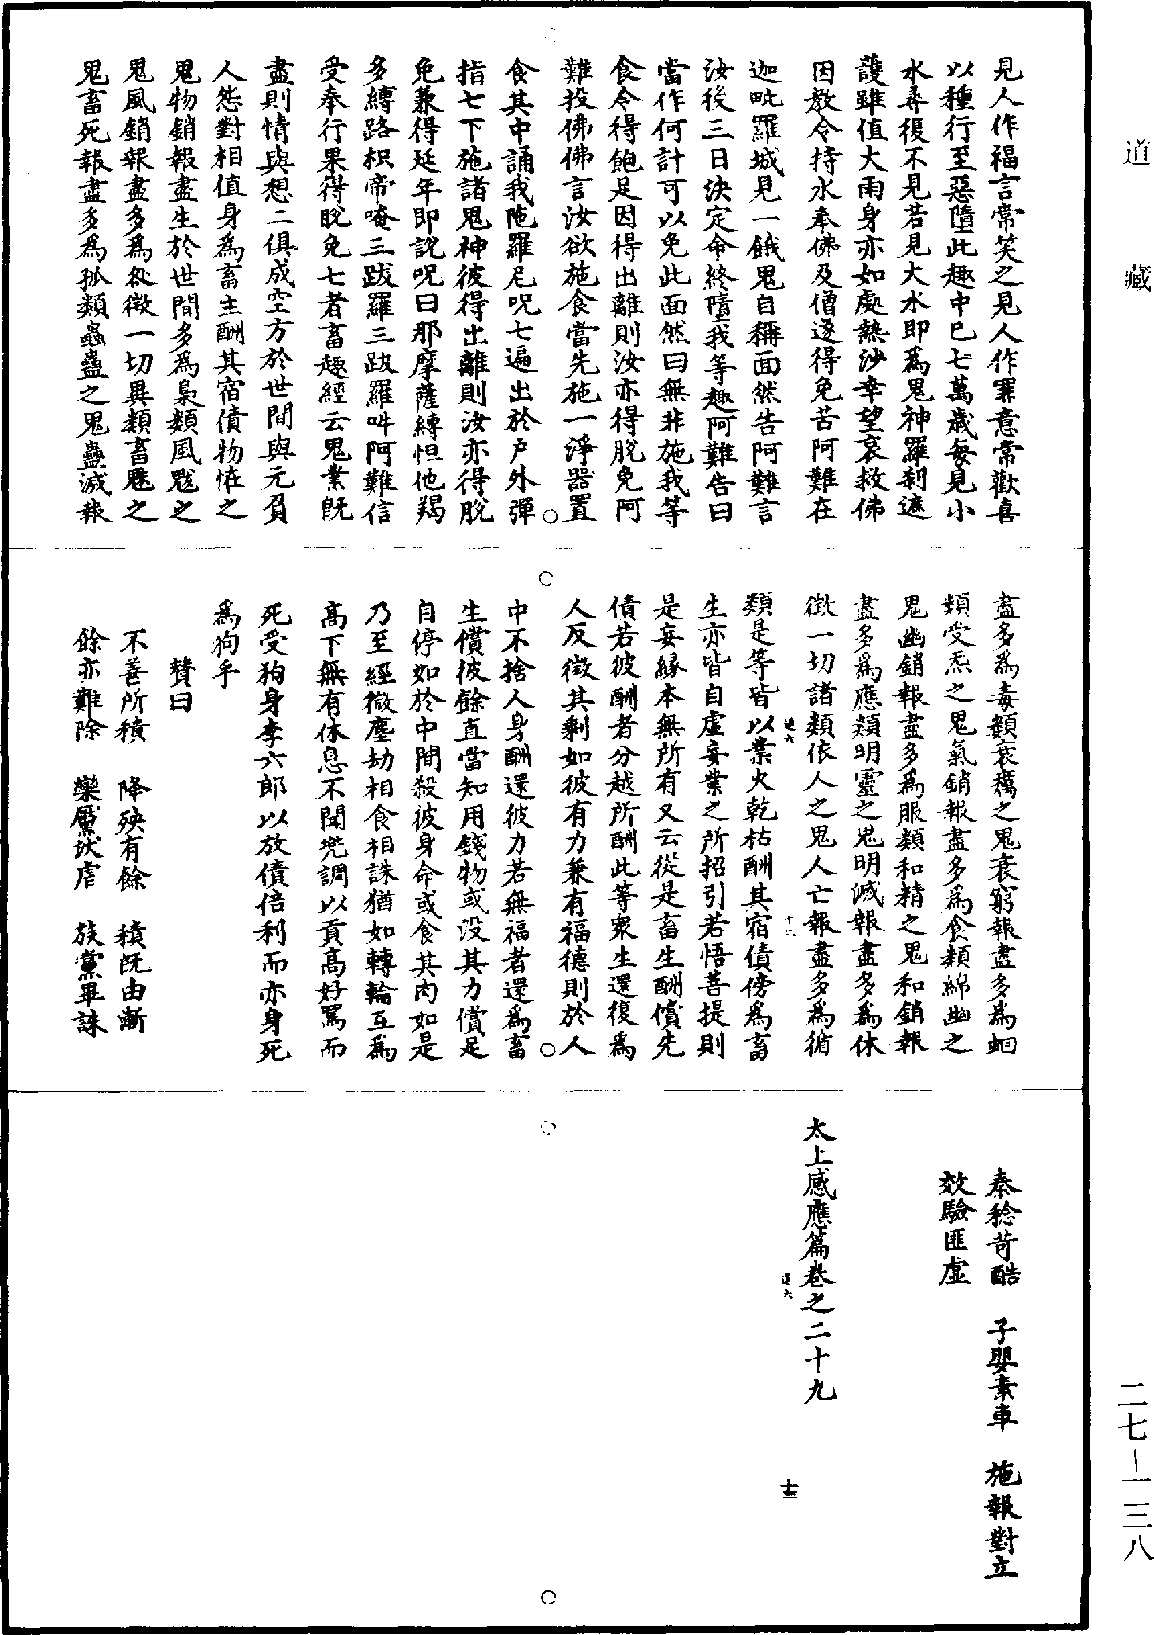 見人作福言常笑之見人作罪意常歡喜
以種行至惡墮此趣中已七萬歲每見小
水尋復不見若見大水即為鬼神羅剎遮
護雖值大雨身亦如處熱沙幸望哀救佛
因教令持水奉佛及僧遂得免苦阿難在
迦毗羅城見一餓鬼自稱面然告阿難言
汝後三日決定命終墮我等趣阿難告曰
當作何計可以免此面然曰無非施我等
食令得飽足因得出離則汝亦得脫免阿
難投佛佛言汝欲施食當先施一淨器置
食其中誦我陁羅尼呪七遍出於戶外彈
指七下施諸鬼神彼得出離則汝亦得脫
免兼得延年即說呪曰那摩薩縛怛他羯
多縛路枳帝唵三跋羅三跋羅吽阿難信
受奉行果得脫免七者畜趣經云鬼業既
盡則情與想二俱成空方於世間與元負
人怨對相值身為畜生酬其宿債物怪之
鬼物銷報盡生於世間多為梟類風魃之
鬼風銷報盡多為咎徵一切異類畜魅之
鬼畜死報盡多為狐類蟲蠱之鬼蠱滅報
盡多為毒類衰癘之鬼衰窮報盡多為蛔
類受炁之鬼氣銷報盡多為食類綿幽之
鬼幽銷報盡多為服類和精之鬼和銷報
盡多為應類明靈之鬼明滅報盡多為休
徵一切諸類依人之鬼人亡報盡多為循
類是等皆以業火乾枯酬其宿債傍為畜
生亦皆自虛妄業之所招引若悟菩提則
是妄緣本無所有又云從是畜生酬償先
債若彼酬者分越所酬此等眾生還復為
人反徵其剩如彼有力兼有福德則於人
中不捨人身酬還彼力若無福者還為畜
生償彼餘直當知用錢物或沒其力償足
自停如於中間殺彼身命或食其肉如是
乃至經微塵劫相食相誅猶如轉輪互為
高下無有休息不聞党調以貢高好罵而
死受狗身李六郎以放債倍利而亦身死
為狗乎
贊曰
不善所積　降殃有餘　積既由漸
餘亦難除　欒黶汰虐　族黨畢誅
秦稔苛酷　子嬰素車　施報對立
效驗匪虛
太上感應篇卷之二十九
十三
道藏
二七－一三八